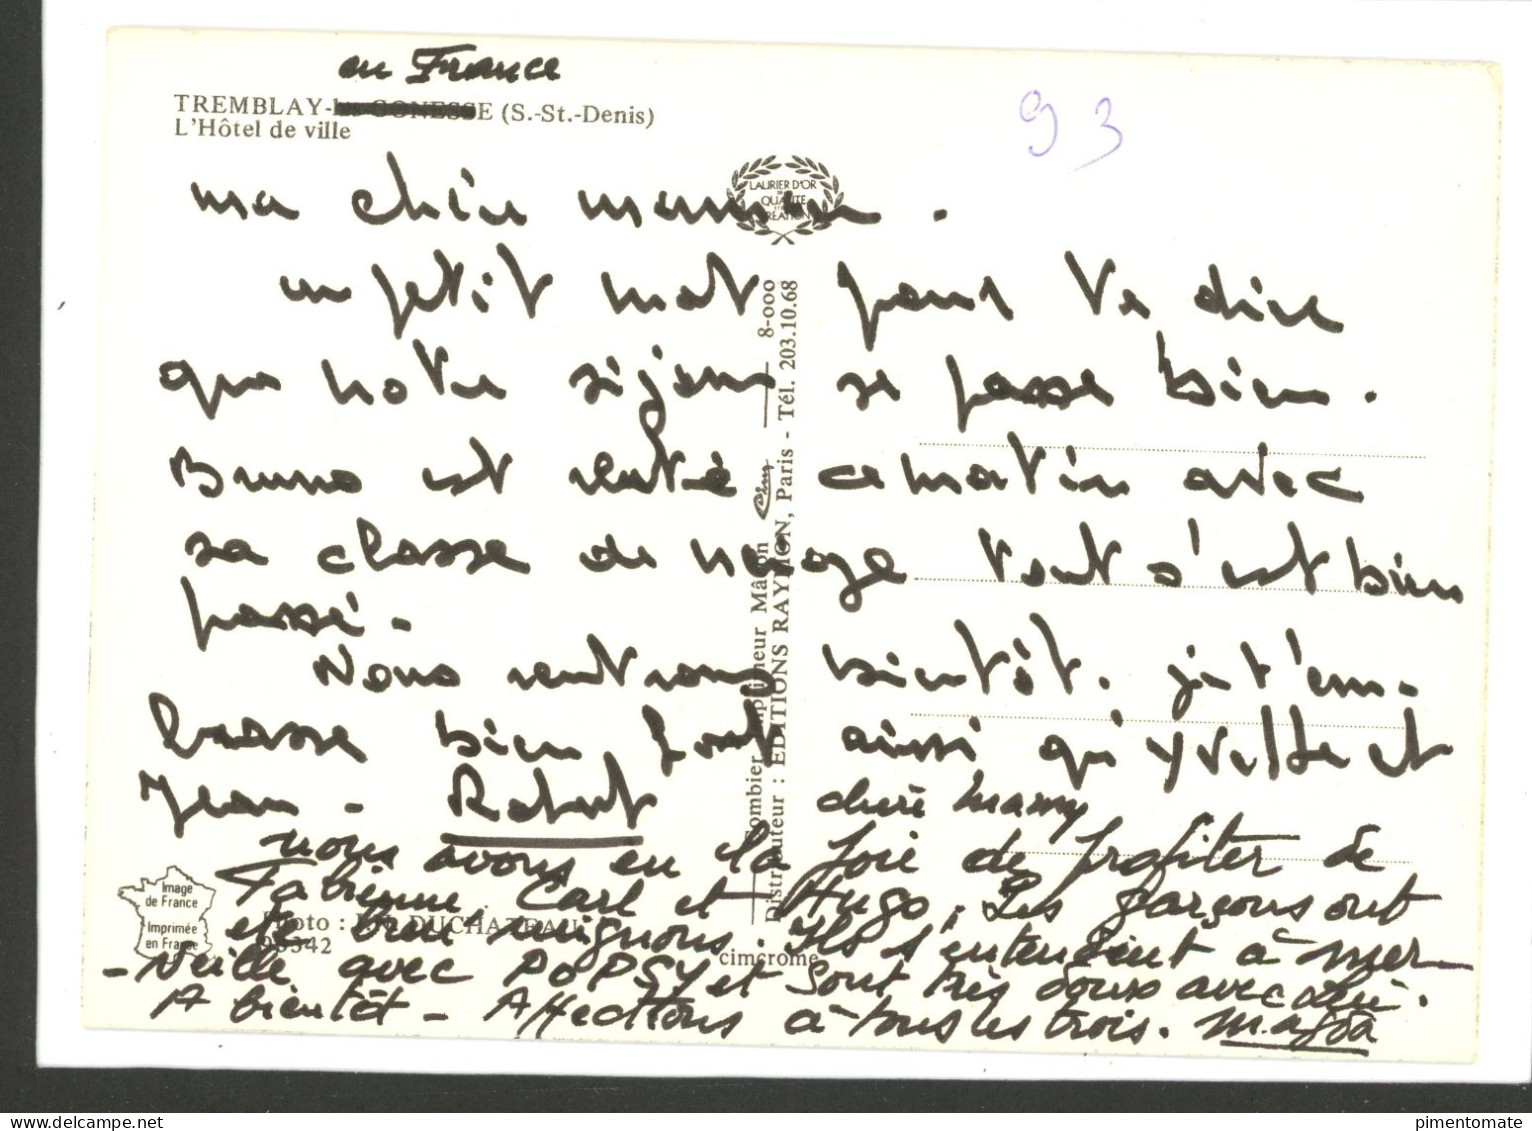 en France
TREMBLAY-les-GONESSE (S.-St.-Denis)
L'Hôtel de ville
93
LAURIER D'OR
DE
QUALITE
ET
CREATION
ma chère maman.
un petit mot pour te dire
que notre séjour se passe bien.
Bruno est rentré ce matin avec
sa classe de neige tout s'est bien
passé -
Nous rentrons bientôt. je t'em-
brasse bien fort ainsi qu'Yvette et
Jean - Robert
chère Mamy
nous avons eu la joie de profiter de
Fabienne, Carl et Hugo, Les garçons ont
été bien mignons. Ils s'entendent à mer-
-veille avec POPSY et sont très doux avec
A bientôt - Affections à tous les trois. Magda
Combier Imprimeur Mâcon Cim 8-000
Distributeur : EDITIONS RAYMON, Paris - Tél. 203.10.68
Image
de France
Imprimée
en France
Photo : DUCHATEAU
cimcrome
delcampe.net
pimentomate